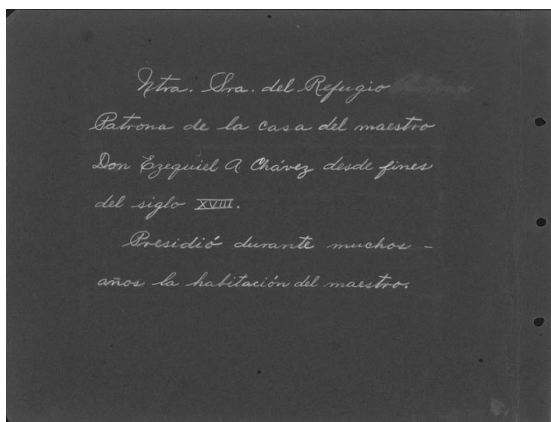 Ntra. Sra. del Refugio
Patrona de la casa del maestro
Don Ezequiel A. Chávez desde fines
del siglo XVIII.
Presidió durante muchos -
años la habitación del maestro.